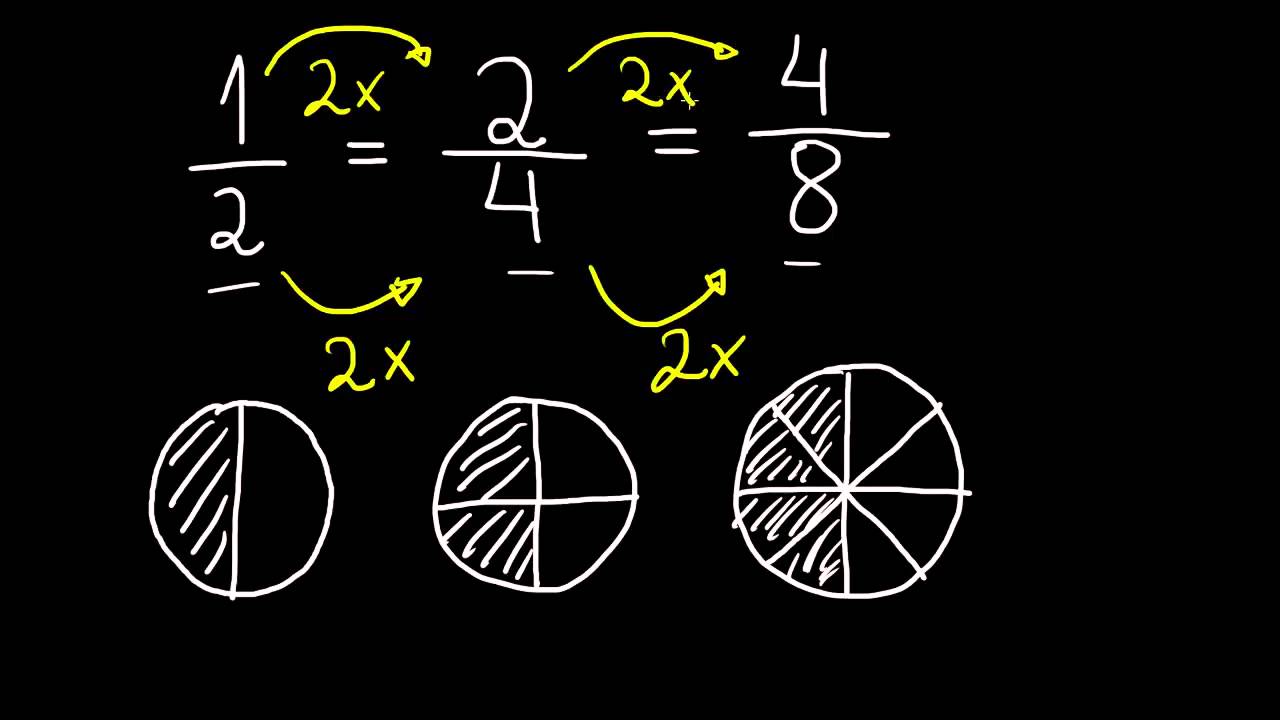 2x 2x
1/2 = 2/4 = 4/8
2x 2x